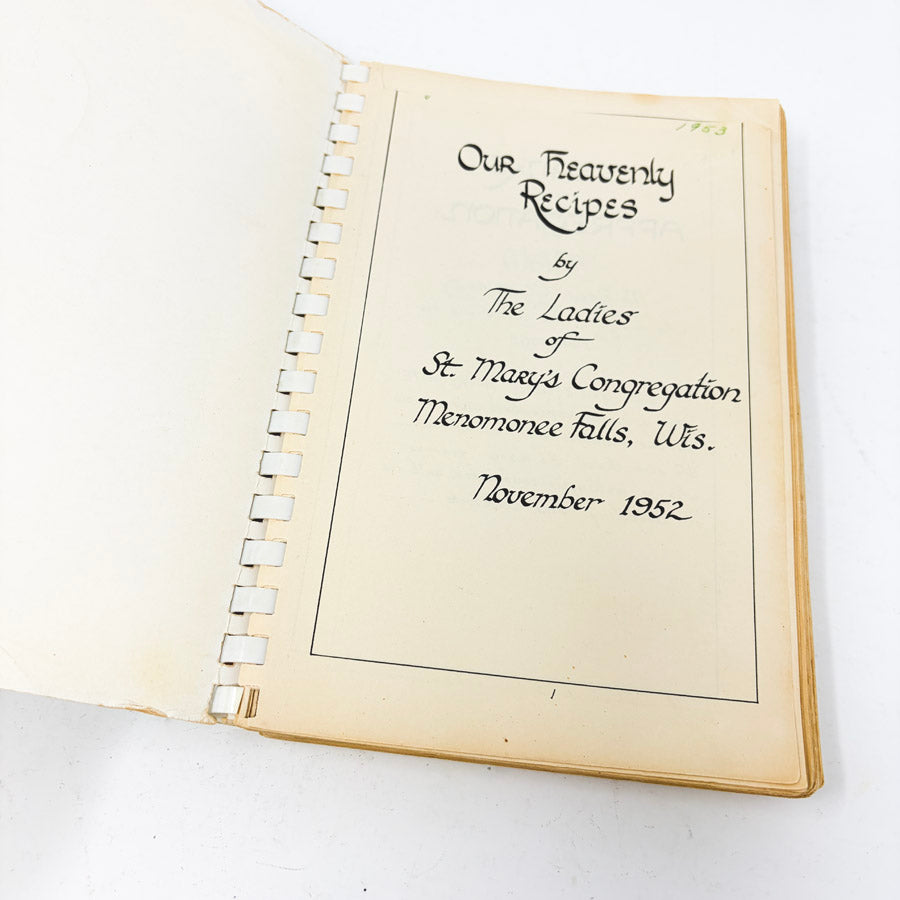 1953
Our Heavenly
Recipes
by
The Ladies
of
St. Mary's Congregation
Menomonee Falls, Wis.
November 1952
1